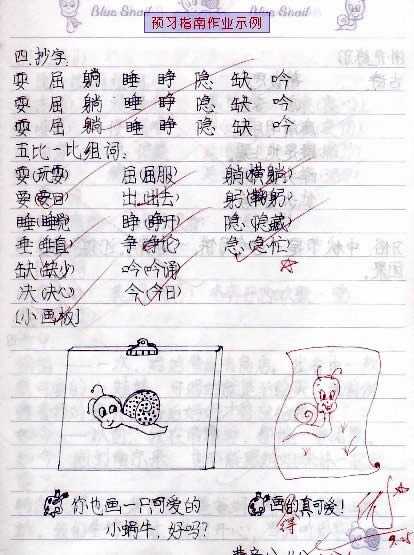 Blue Snail
预习指南作业示例
四.抄字:
耍 屈 躺 睡 睁 隐 缺 吟
耍 屈 躺 睡 睁 隐 缺 吟
耍 屈 躺 睡 睁 隐 缺 吟
五比一比组词:
耍(玩耍) 屈(屈服) 躺(横躺)
要(要日) 出(出去) 躬(鞠躬)
睡(睡觉) 睁(睁开) 隐(隐藏)
垂(垂直) 争(争论) 急(急忙)
缺(缺少) 吟(吟诵)
决(决心) 今(今日)
[小画板]
你也画一只可爱的 画的真可爱!
小蜗牛,好吗? 得
9.25